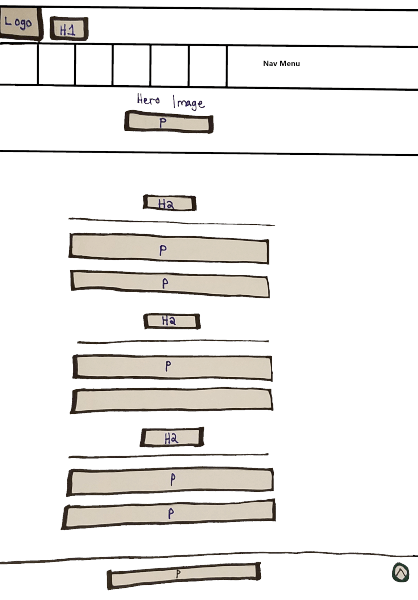 Logo
H1
Nav Menu
Hero Image
P
H2
P
P
H2
P
H2
P
P
P